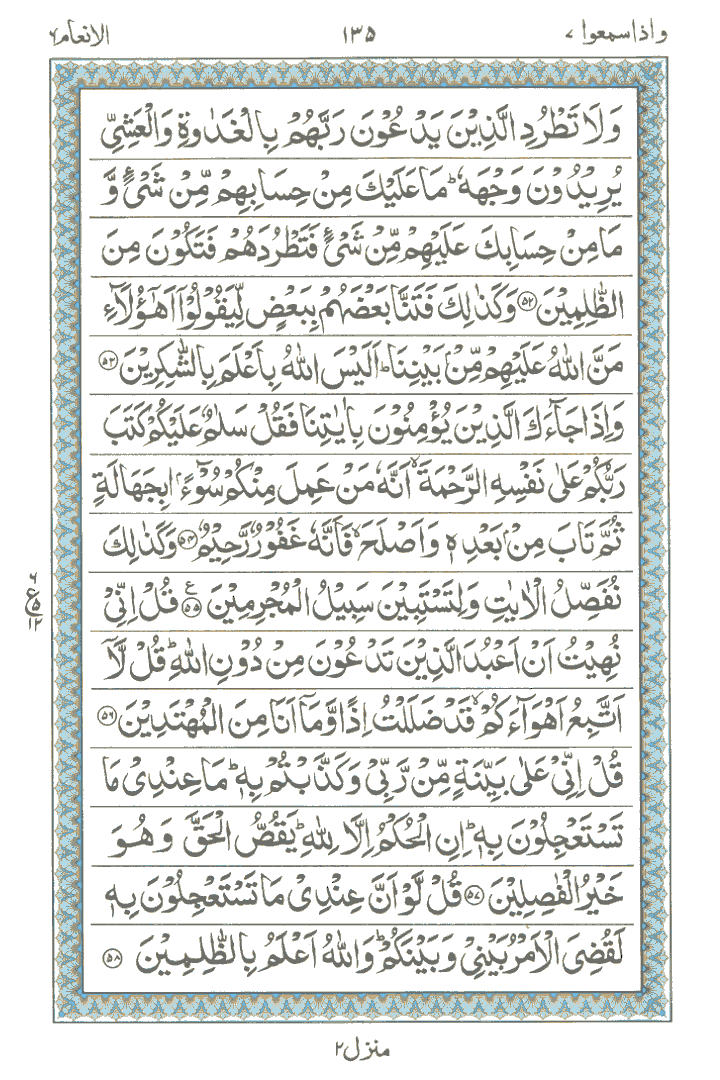 واذاسمعوا ٧
١٣٥
الانعام ٦
وَلَا تَطْرُدِ الَّذِيْنَ يَدْعُوْنَ رَبَّهُمْ بِالْغَدٰوةِ وَالْعَشِيِّ
يُرِيْدُوْنَ وَجْهَهٗ ؕ مَا عَلَيْكَ مِنْ حِسَابِهِمْ مِّنْ شَيْءٍ وَّ
مَا مِنْ حِسَابِكَ عَلَيْهِمْ مِّنْ شَيْءٍ فَتَطْرُدَهُمْ فَتَكُوْنَ مِنَ
الظّٰلِمِيْنَ ﴿۵۲﴾ وَكَذٰلِكَ فَتَنَّا بَعْضَهُمْ بِبَعْضٍ لِّيَقُوْلُوْۤا اَهٰۤؤُلَآءِ
مَنَّ اللّٰهُ عَلَيْهِمْ مِّنْۢ بَيْنِنَا ؕ اَلَيْسَ اللّٰهُ بِاَعْلَمَ بِالشّٰكِرِيْنَ ﴿۵۳﴾
وَاِذَا جَآءَكَ الَّذِيْنَ يُؤْمِنُوْنَ بِاٰيٰتِنَا فَقُلْ سَلٰمٌ عَلَيْكُمْ كَتَبَ
رَبُّكُمْ عَلٰى نَفْسِهِ الرَّحْمَةَ ۙ اَنَّهٗ مَنْ عَمِلَ مِنْكُمْ سُوْٓءًۢا بِجَهَالَةٍ
ثُمَّ تَابَ مِنْۢ بَعْدِهٖ وَاَصْلَحَ ۙ فَاَنَّهٗ غَفُوْرٌ رَّحِيْمٌ ﴿۵۴﴾ وَكَذٰلِكَ
نُفَصِّلُ الْاٰيٰتِ وَلِتَسْتَبِيْنَ سَبِيْلُ الْمُجْرِمِيْنَ ﴿۵۵﴾ ع قُلْ اِنِّيْ
٦
ع ۵
١٢
نُهِيْتُ اَنْ اَعْبُدَ الَّذِيْنَ تَدْعُوْنَ مِنْ دُوْنِ اللّٰهِ ؕ قُلْ لَّاۤ
اَتَّبِعُ اَهْوَآءَكُمْ ۙ قَدْ ضَلَلْتُ اِذًا وَّمَاۤ اَنَا مِنَ الْمُهْتَدِيْنَ ﴿۵۶﴾
قُلْ اِنِّيْ عَلٰى بَيِّنَةٍ مِّنْ رَّبِّيْ وَكَذَّبْتُمْ بِهٖ ؕ مَا عِنْدِيْ مَا
تَسْتَعْجِلُوْنَ بِهٖ ؕ اِنِ الْحُكْمُ اِلَّا لِلّٰهِ ؕ يَقُصُّ الْحَقَّ وَهُوَ
خَيْرُ الْفٰصِلِيْنَ ﴿۵۷﴾ قُلْ لَّوْ اَنَّ عِنْدِيْ مَا تَسْتَعْجِلُوْنَ بِهٖ
لَقُضِيَ الْاَمْرُ بَيْنِيْ وَبَيْنَكُمْ ؕ وَاللّٰهُ اَعْلَمُ بِالظّٰلِمِيْنَ ﴿۵۸﴾
منزل ٢